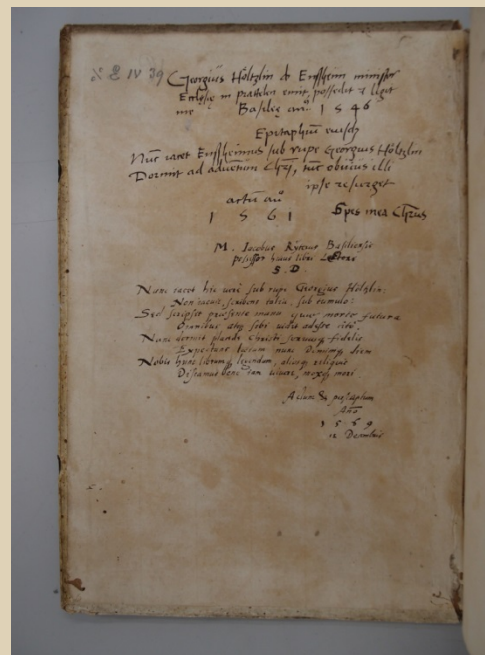 N E IV 39 Georgius Höltzlin de Ensheim minister
Ecclesię in prattelen emit, possedit & legit
me Basileę anno 1 5 4 6
Epitaphiū eiusdē
Nūc iacet Ensheimius sub rupe Georgius Höltzlin
Dormit ad adventum Chrī, tūc obvius illi
ipse resurget
actū ao
1 5 6 1 Spes mea Chrus
M. Iacobus Ryterus Basiliensis
possessor huius libri
S. D
Nunc iacet hic vere sub rupe Georgius Höltzlin:
Non iacuit, scribens talia, sub tumulo:
Sed scripsit praesente manu quae morte futura
Omnibus atque sibi
Nunc dormit Christi servusque fidelis
Expectans ipsum nunc diem
Nobis hunc librumque legendum, reliquit
Discamus bene iam vivere, moxque mori
Actum
Año
1 5 6 9
12 Decembris